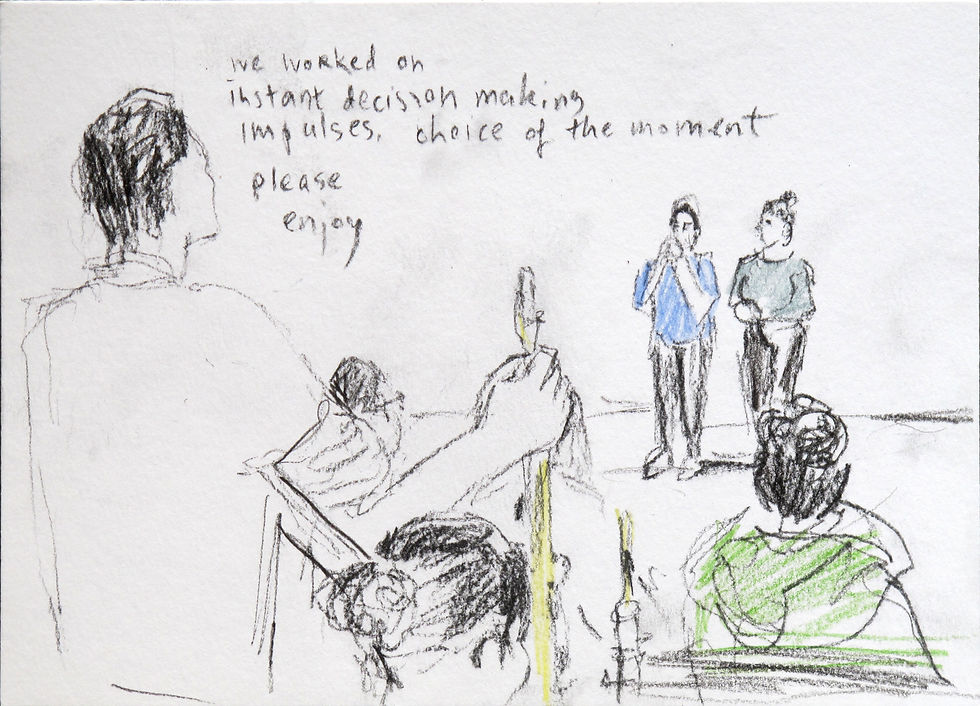 we worked on
instant decision making
impulses. choice of the moment
please
enjoy